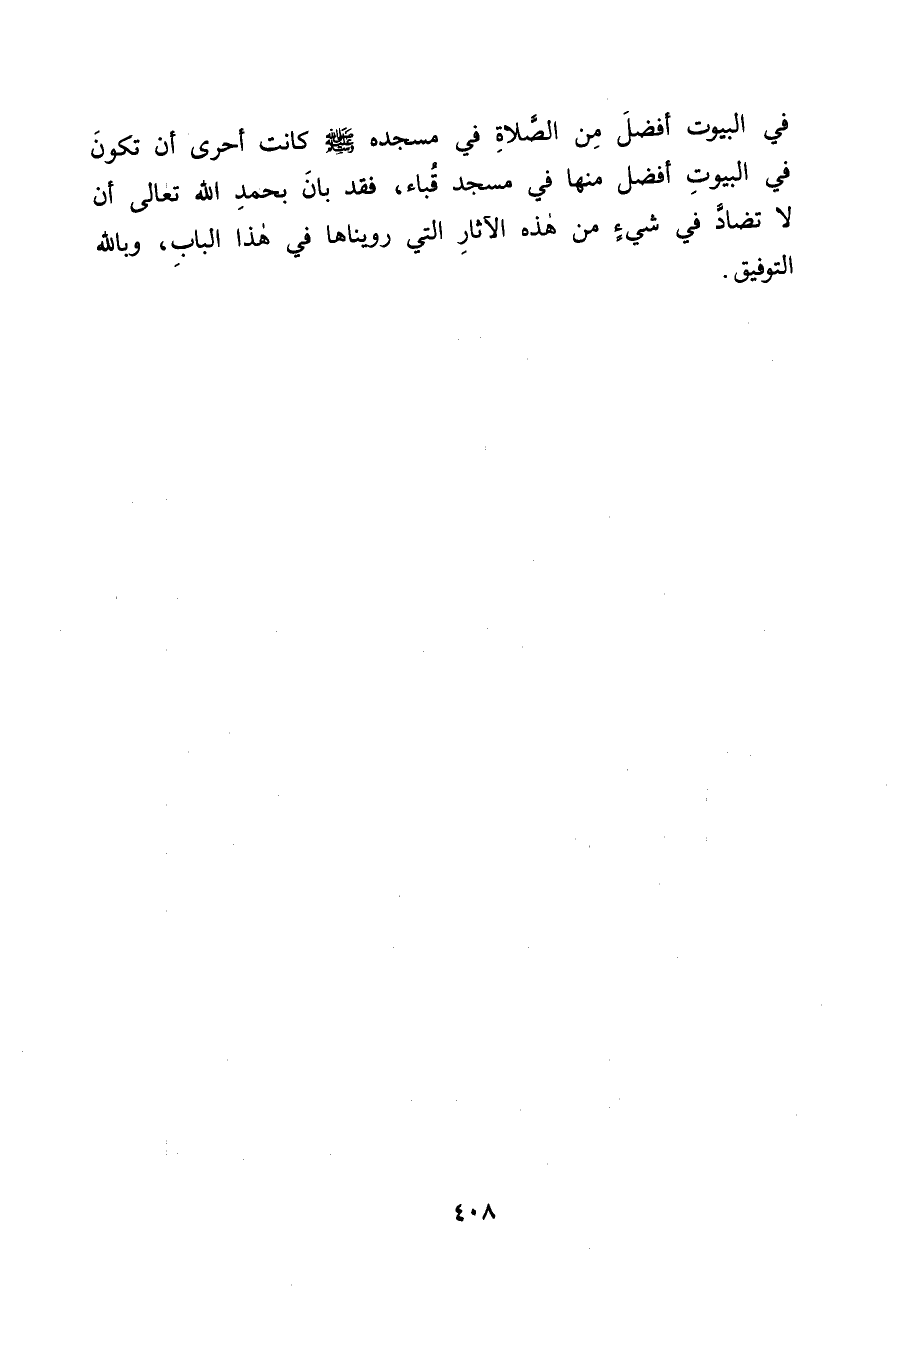 في البيوت أفضلَ مِن الصَّلاةِ في مسجده ﷺ كانت أحرى أن تكونَ
في البيوتِ أفضل منها في مسجد قُباء، فقد بانَ بحمدِ الله تعالى أن
لا تضادَّ في شيءٍ من هٰذه الآثارِ التي رويناها في هٰذا البابِ، وبالله
التوفيق.
٤٠٨